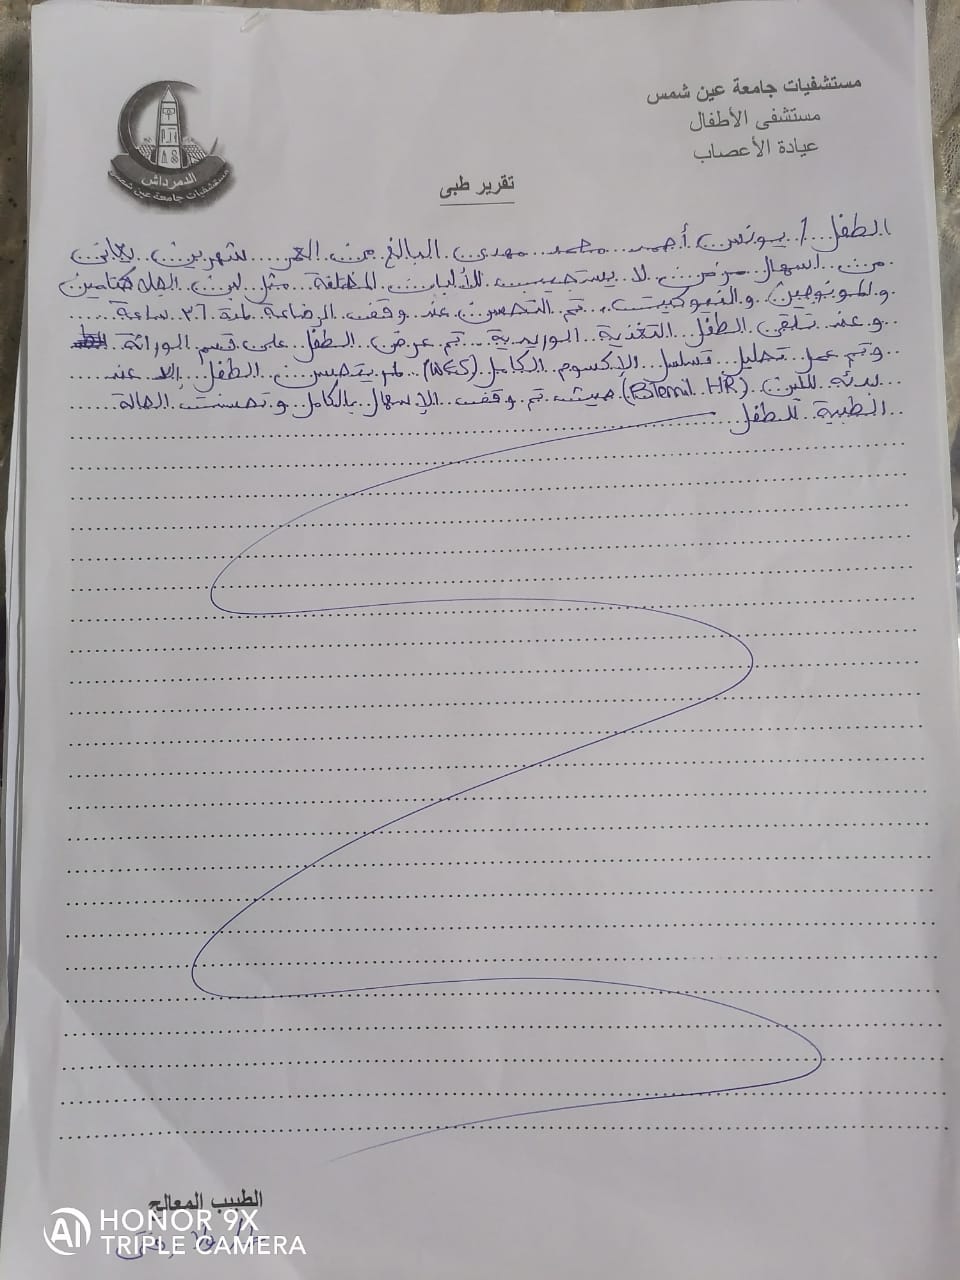 مستشفيات جامعة عين شمس
مستشفى الأطفال
عيادة الأعصاب
الدمرداش
مستشفيات جامعة عين شمس
تقرير طبى
الطفل / يونس أحمد محمد مهدى البالغ من العمر شهرين يعانى
من اسهال مزمن لا يستجيب للألبان المختلفة مثل لبن
تم التحسن عند وقف الرضاعة لمدة ٣٦ ساعة
و عند تلقى الطفل التغذية الوريدية تم عرض الطفل على قسم الوراثة
وتم عمل تحليل تسلسل الإكسوم الكامل (WES) لم يتحسن الطفل إلا عند
بدئه للبن (Bebemil HR) حيث تم وقف الإسهال بالكامل و تحسنت الحالة
الطبية للطفل
الطبيب المعالج
HONOR 9X
AI TRIPLE CAMERA